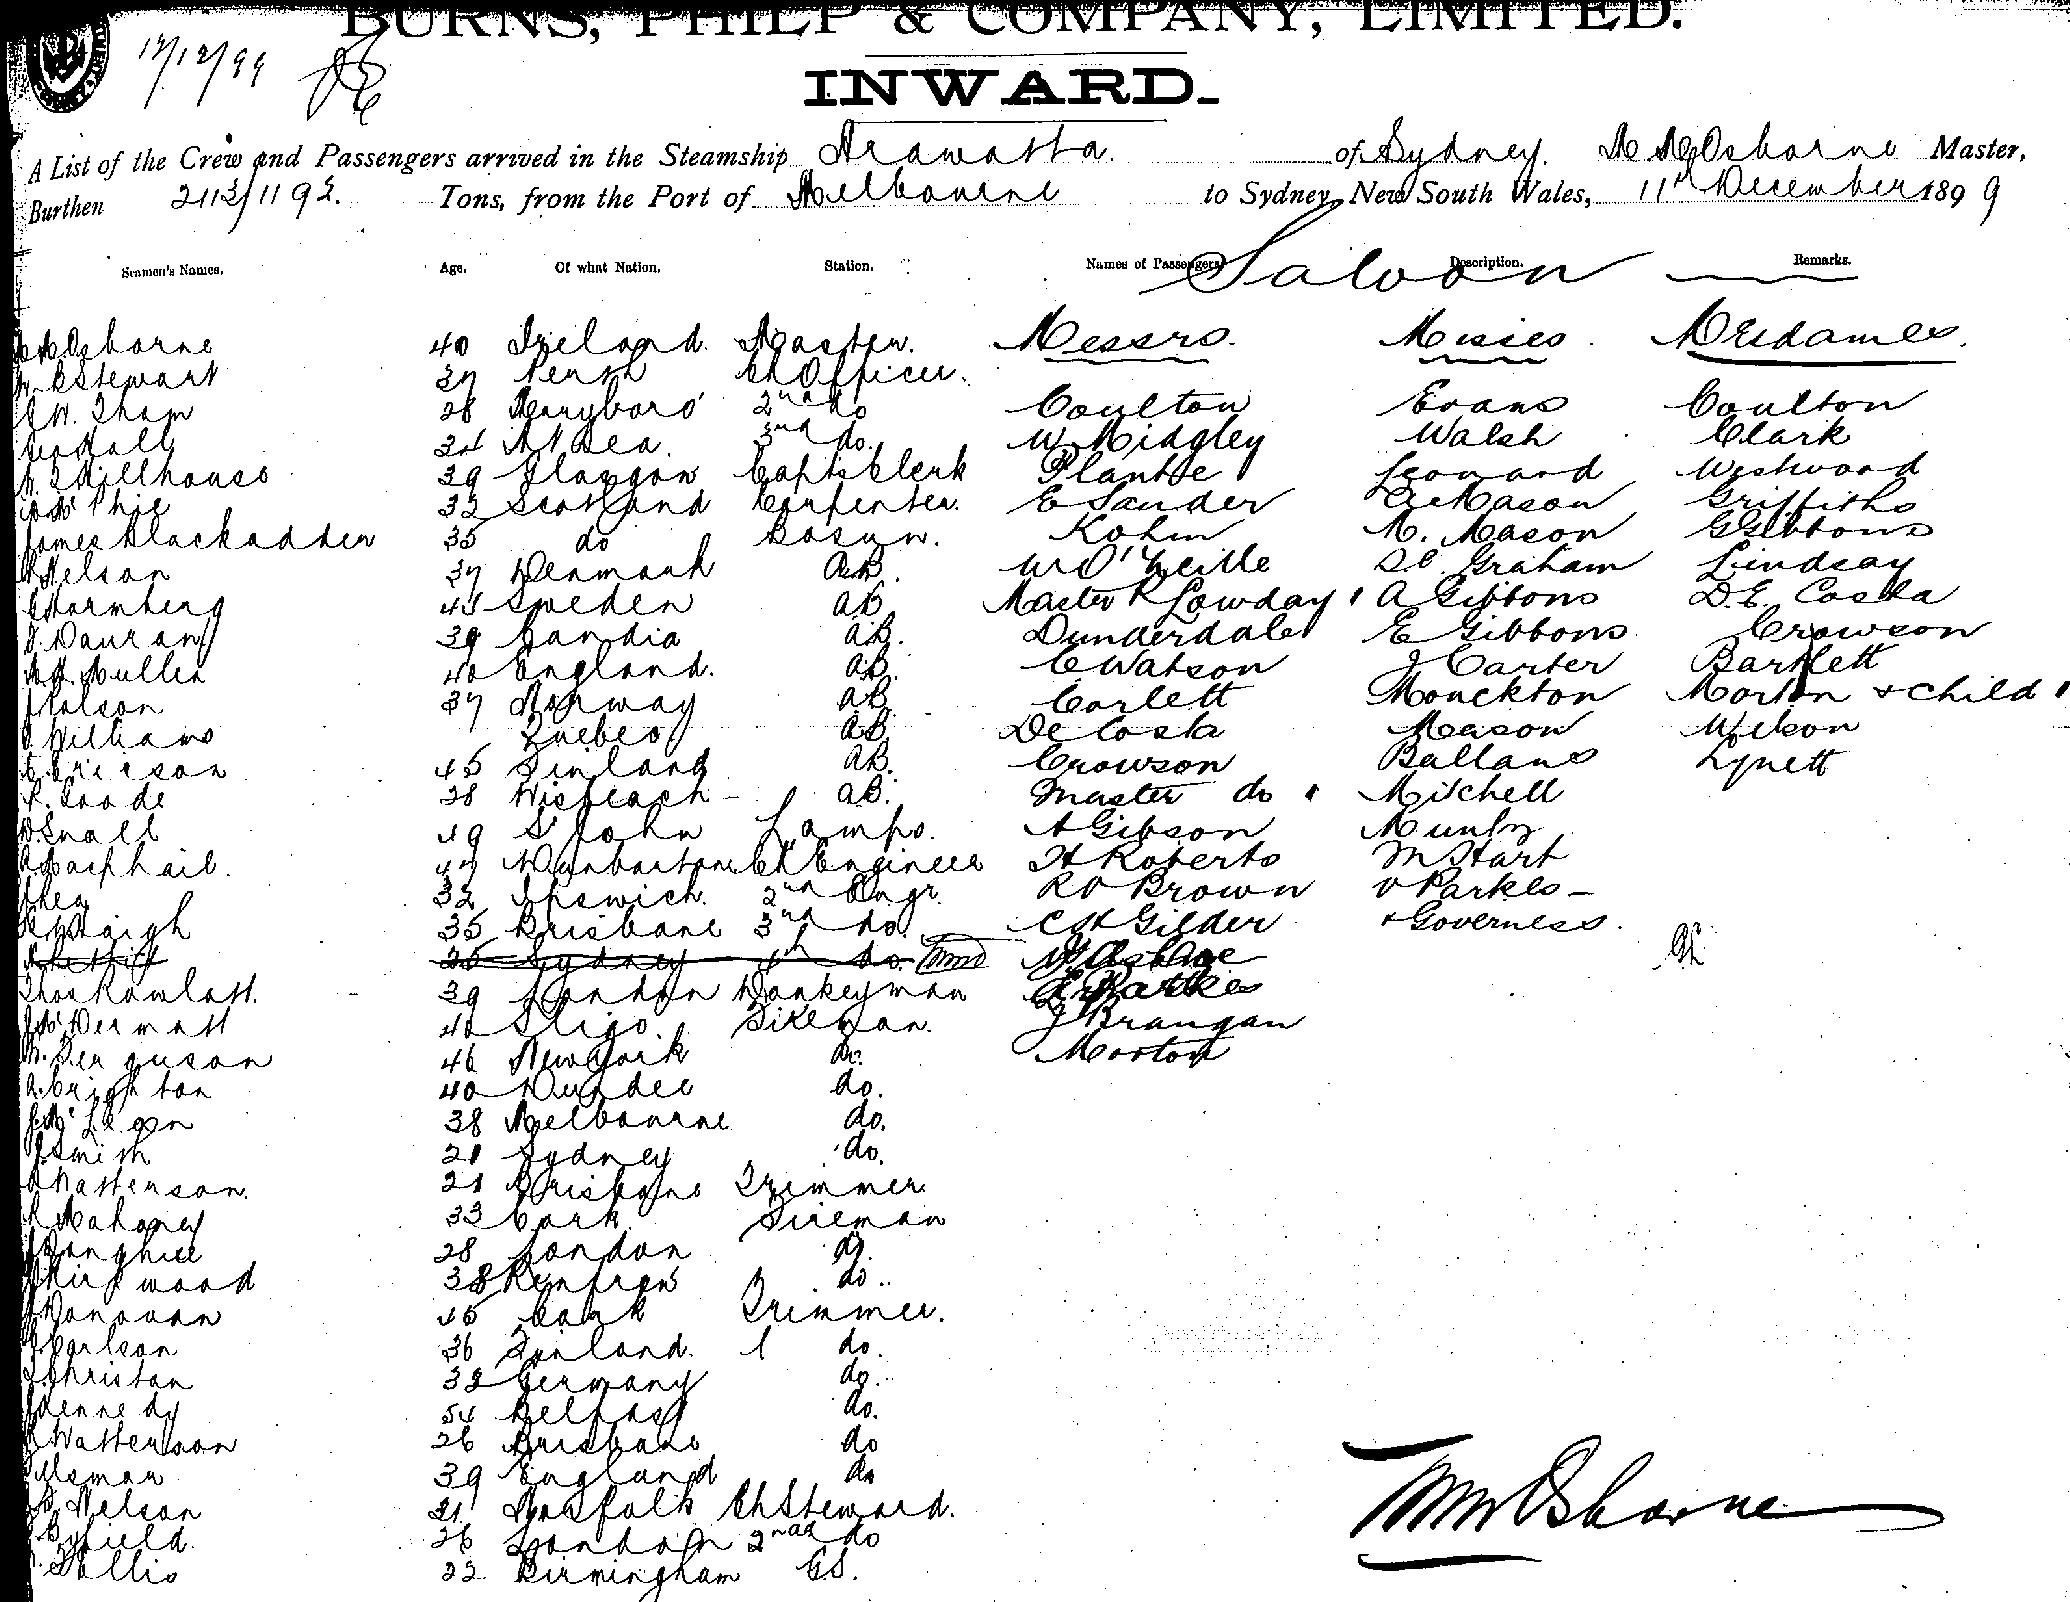 BURNS, PHILP & COMPANY, LIMITED.
12/12/99
INWARD.
A List of the Crew and Passengers arrived in the Steamship Arawatta. of Sydney. Osborne Master,
Burthen 2113/1192. Tons, from the Port of Melbourne to Sydney, New South Wales, 11th December 1899
Seamen's Names. Age. Of what Nation. Station. Names of Passengers Description. Remarks.
Saloon
Osborne 40 Ireland. Master. Messrs. Misses. Mesdames.
Stewart 37 Perth Ch Officer.
W. Tham 28 Maryboro' 2nd do Coulton Evans Coulton
Hall 24 At Sea. 3rd do. W Midgley Walsh Clark
Millhouse 39 Glasgow Capts Clerk Plante Leonard Westwood
McPhie 32 Scotland Carpenter. E Sander Mason Griffiths
James Blackadder 35 do Bosun. Kohn M. Mason G Gibbons
Nelson 37 Denmark AB. W O'Neille Graham Lindsay
Stormberg 43 Sweden AB Master R Lowday A Gibbons D.E. Costa
39 AB. Dunderdale E Gibbons Crowson
Mullin 40 England. AB. C Watson J Carter Bartlett
37 Norway AB Corlett Monckton Morton & Child
Williams Quebec AB De Costa Meason Wilson
Ericson 45 Finland AB. Crowson Ballans Lynett
Goode 28 Wisbeach AB. Master do Mitchell
Snall 49 St John Lamps. A Gibson Munby
Macphail. 47 Dunbarton Ch Engineer H Roberts M Start
Shea 32 Ipswich. 2nd Engr. R D Brown O Parkes
Haigh 35 Brisbane 3rd do. C H Gilder & Governess.
26 Sydney 4th do.
Thos Rowlatt. 39 London Donkeyman
McDermott 42 Sligo. Fireman. J Brangan
Ferguson 46 New York do. Morton
A. Crighton 40 Dundee do.
38 Melbourne do.
Smith 21 Sydney do.
Watterson. 21 Brisbane Trimmer.
Mahoney 33 Cork Fireman
28 London do.
Kirkwood 38 Renfrew do.
Donovan 45 Cork Trimmer.
Carlson 36 Finland. do.
Christan 32 Germany do.
Kennedy 54 Belfast do.
Watterson 26 Brisbane do
39 England do
Nelson 21 Norfolk Ch Steward.
Byfield. 26 London 2nd do
Tallis 22 Birmingham GS.
Osborne